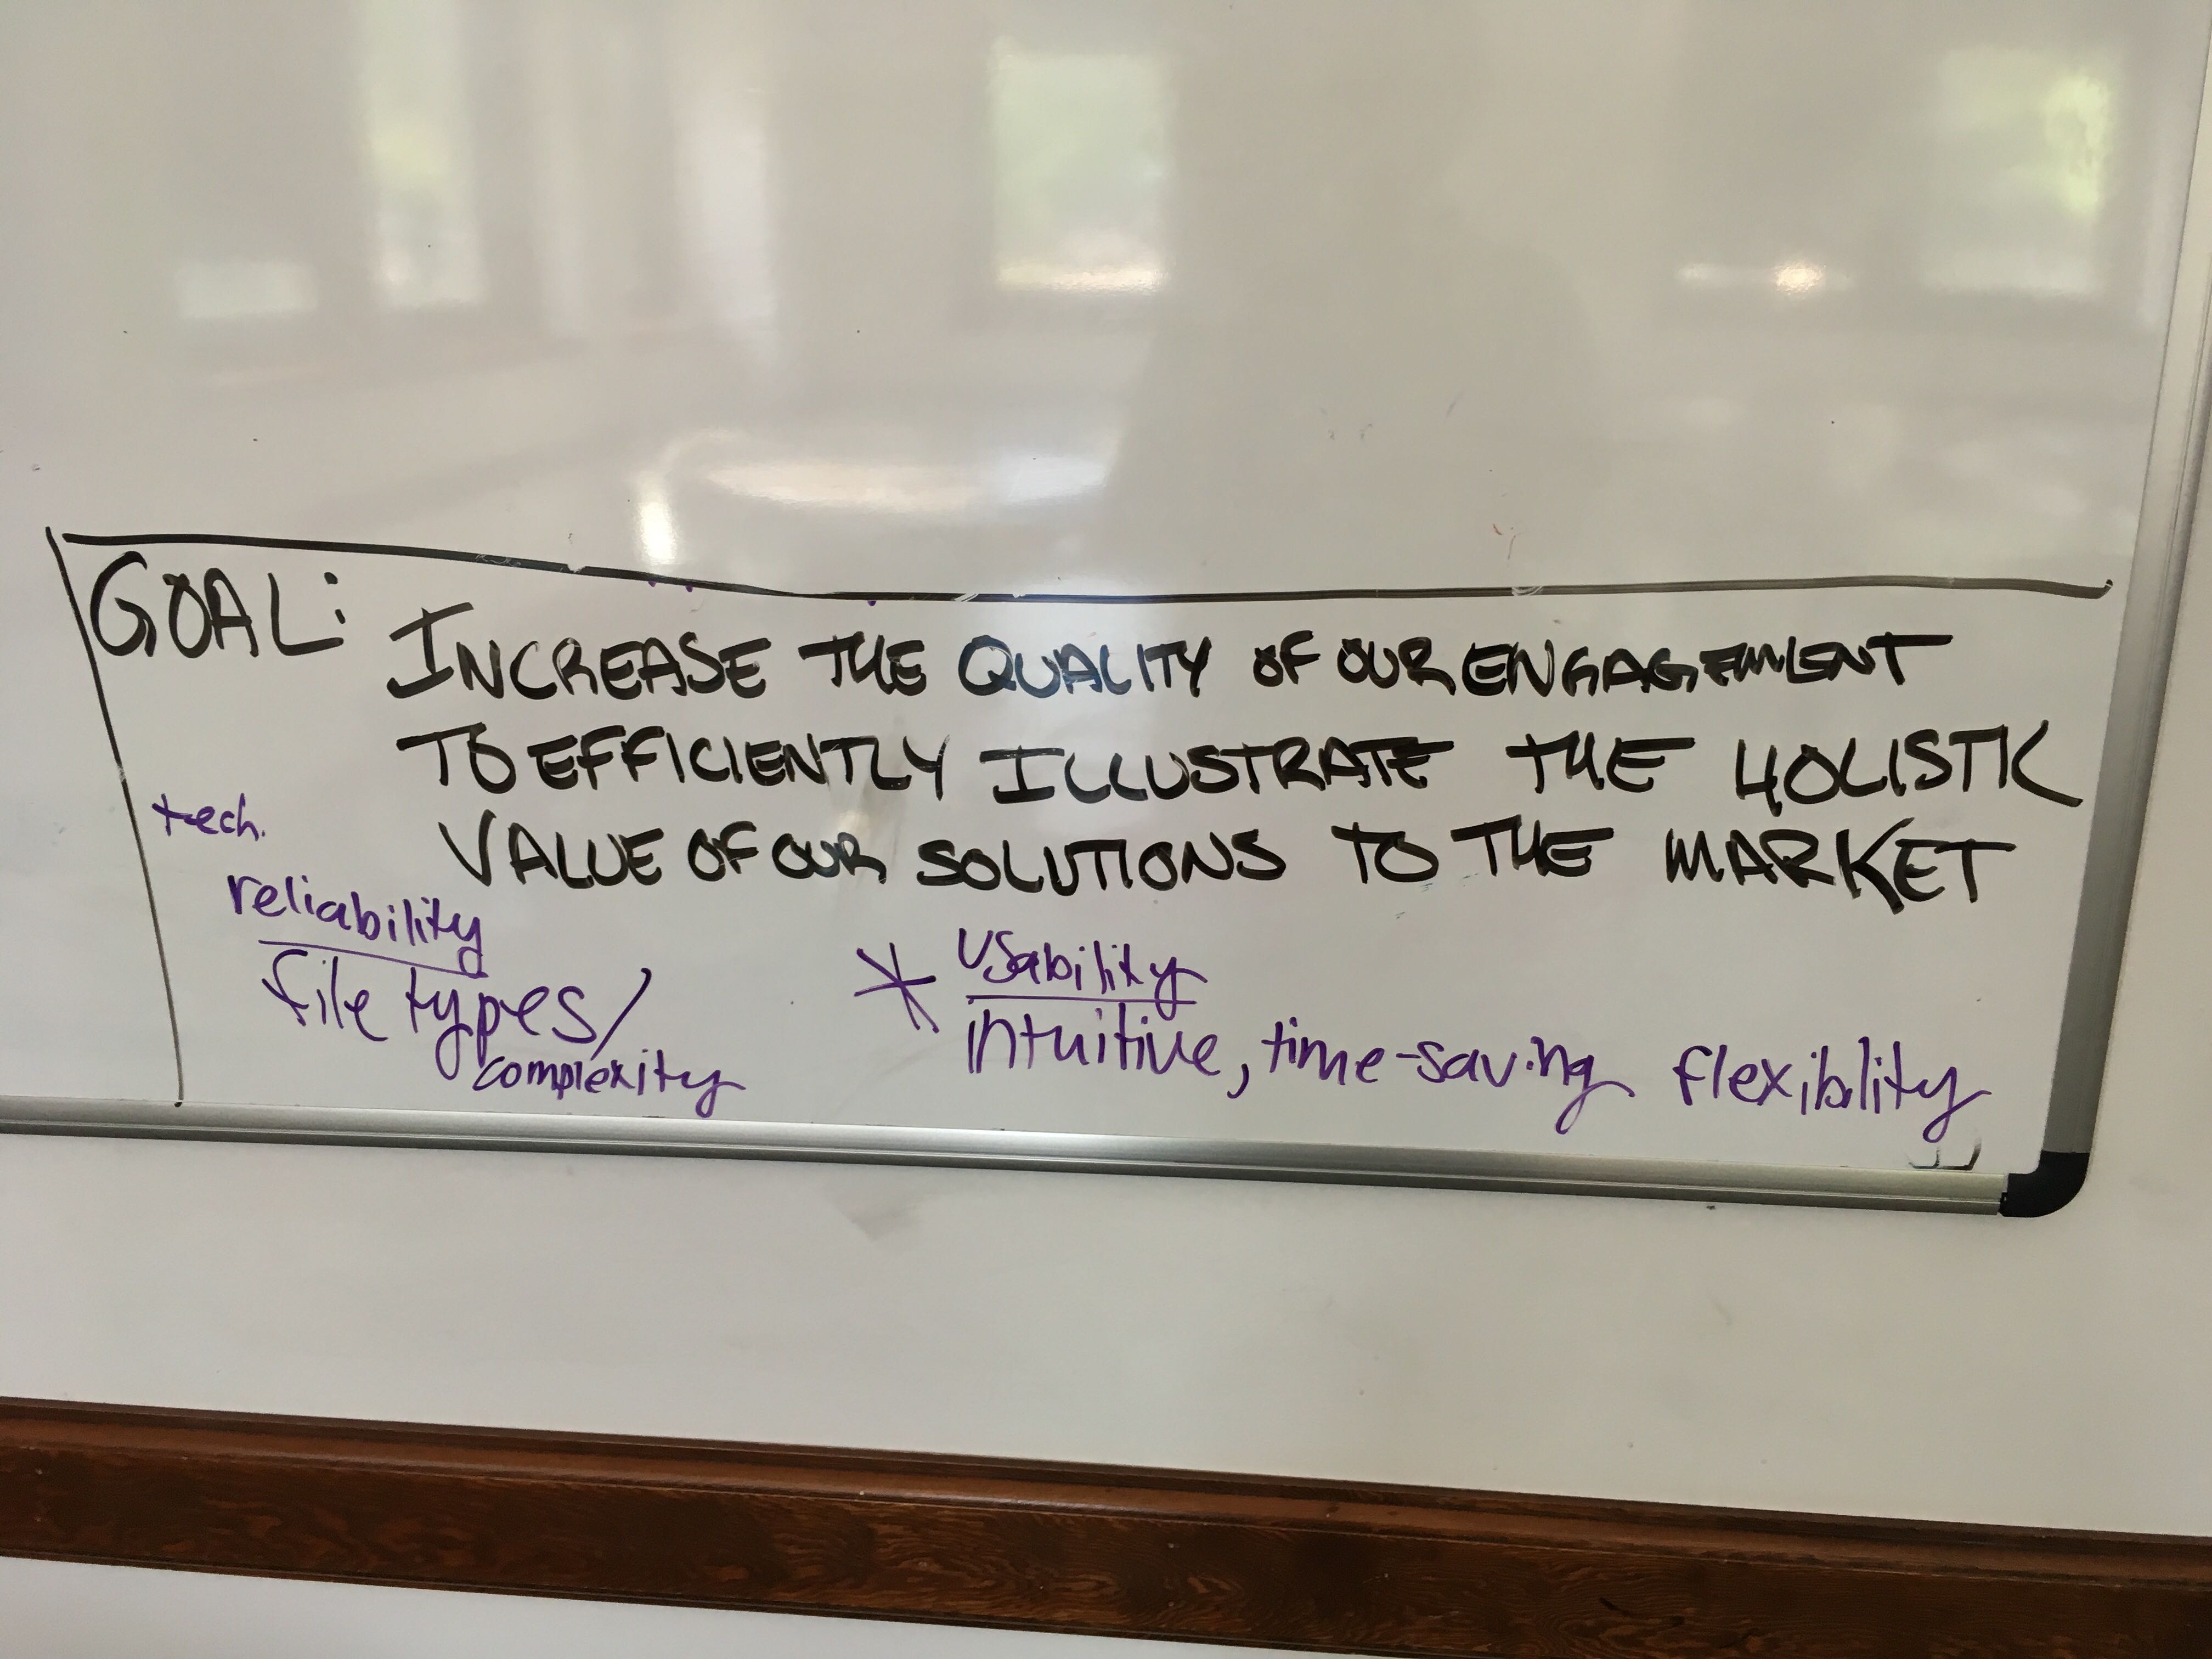 GOAL:
INCREASE THE QUALITY OF OUR ENGAGEMENT
TO EFFICIENTLY ILLUSTRATE THE HOLISTIC
VALUE OF OUR SOLUTIONS TO THE MARKET
tech.
reliability
file types/
complexity
* Usability
intuitive, time-saving flexiblity